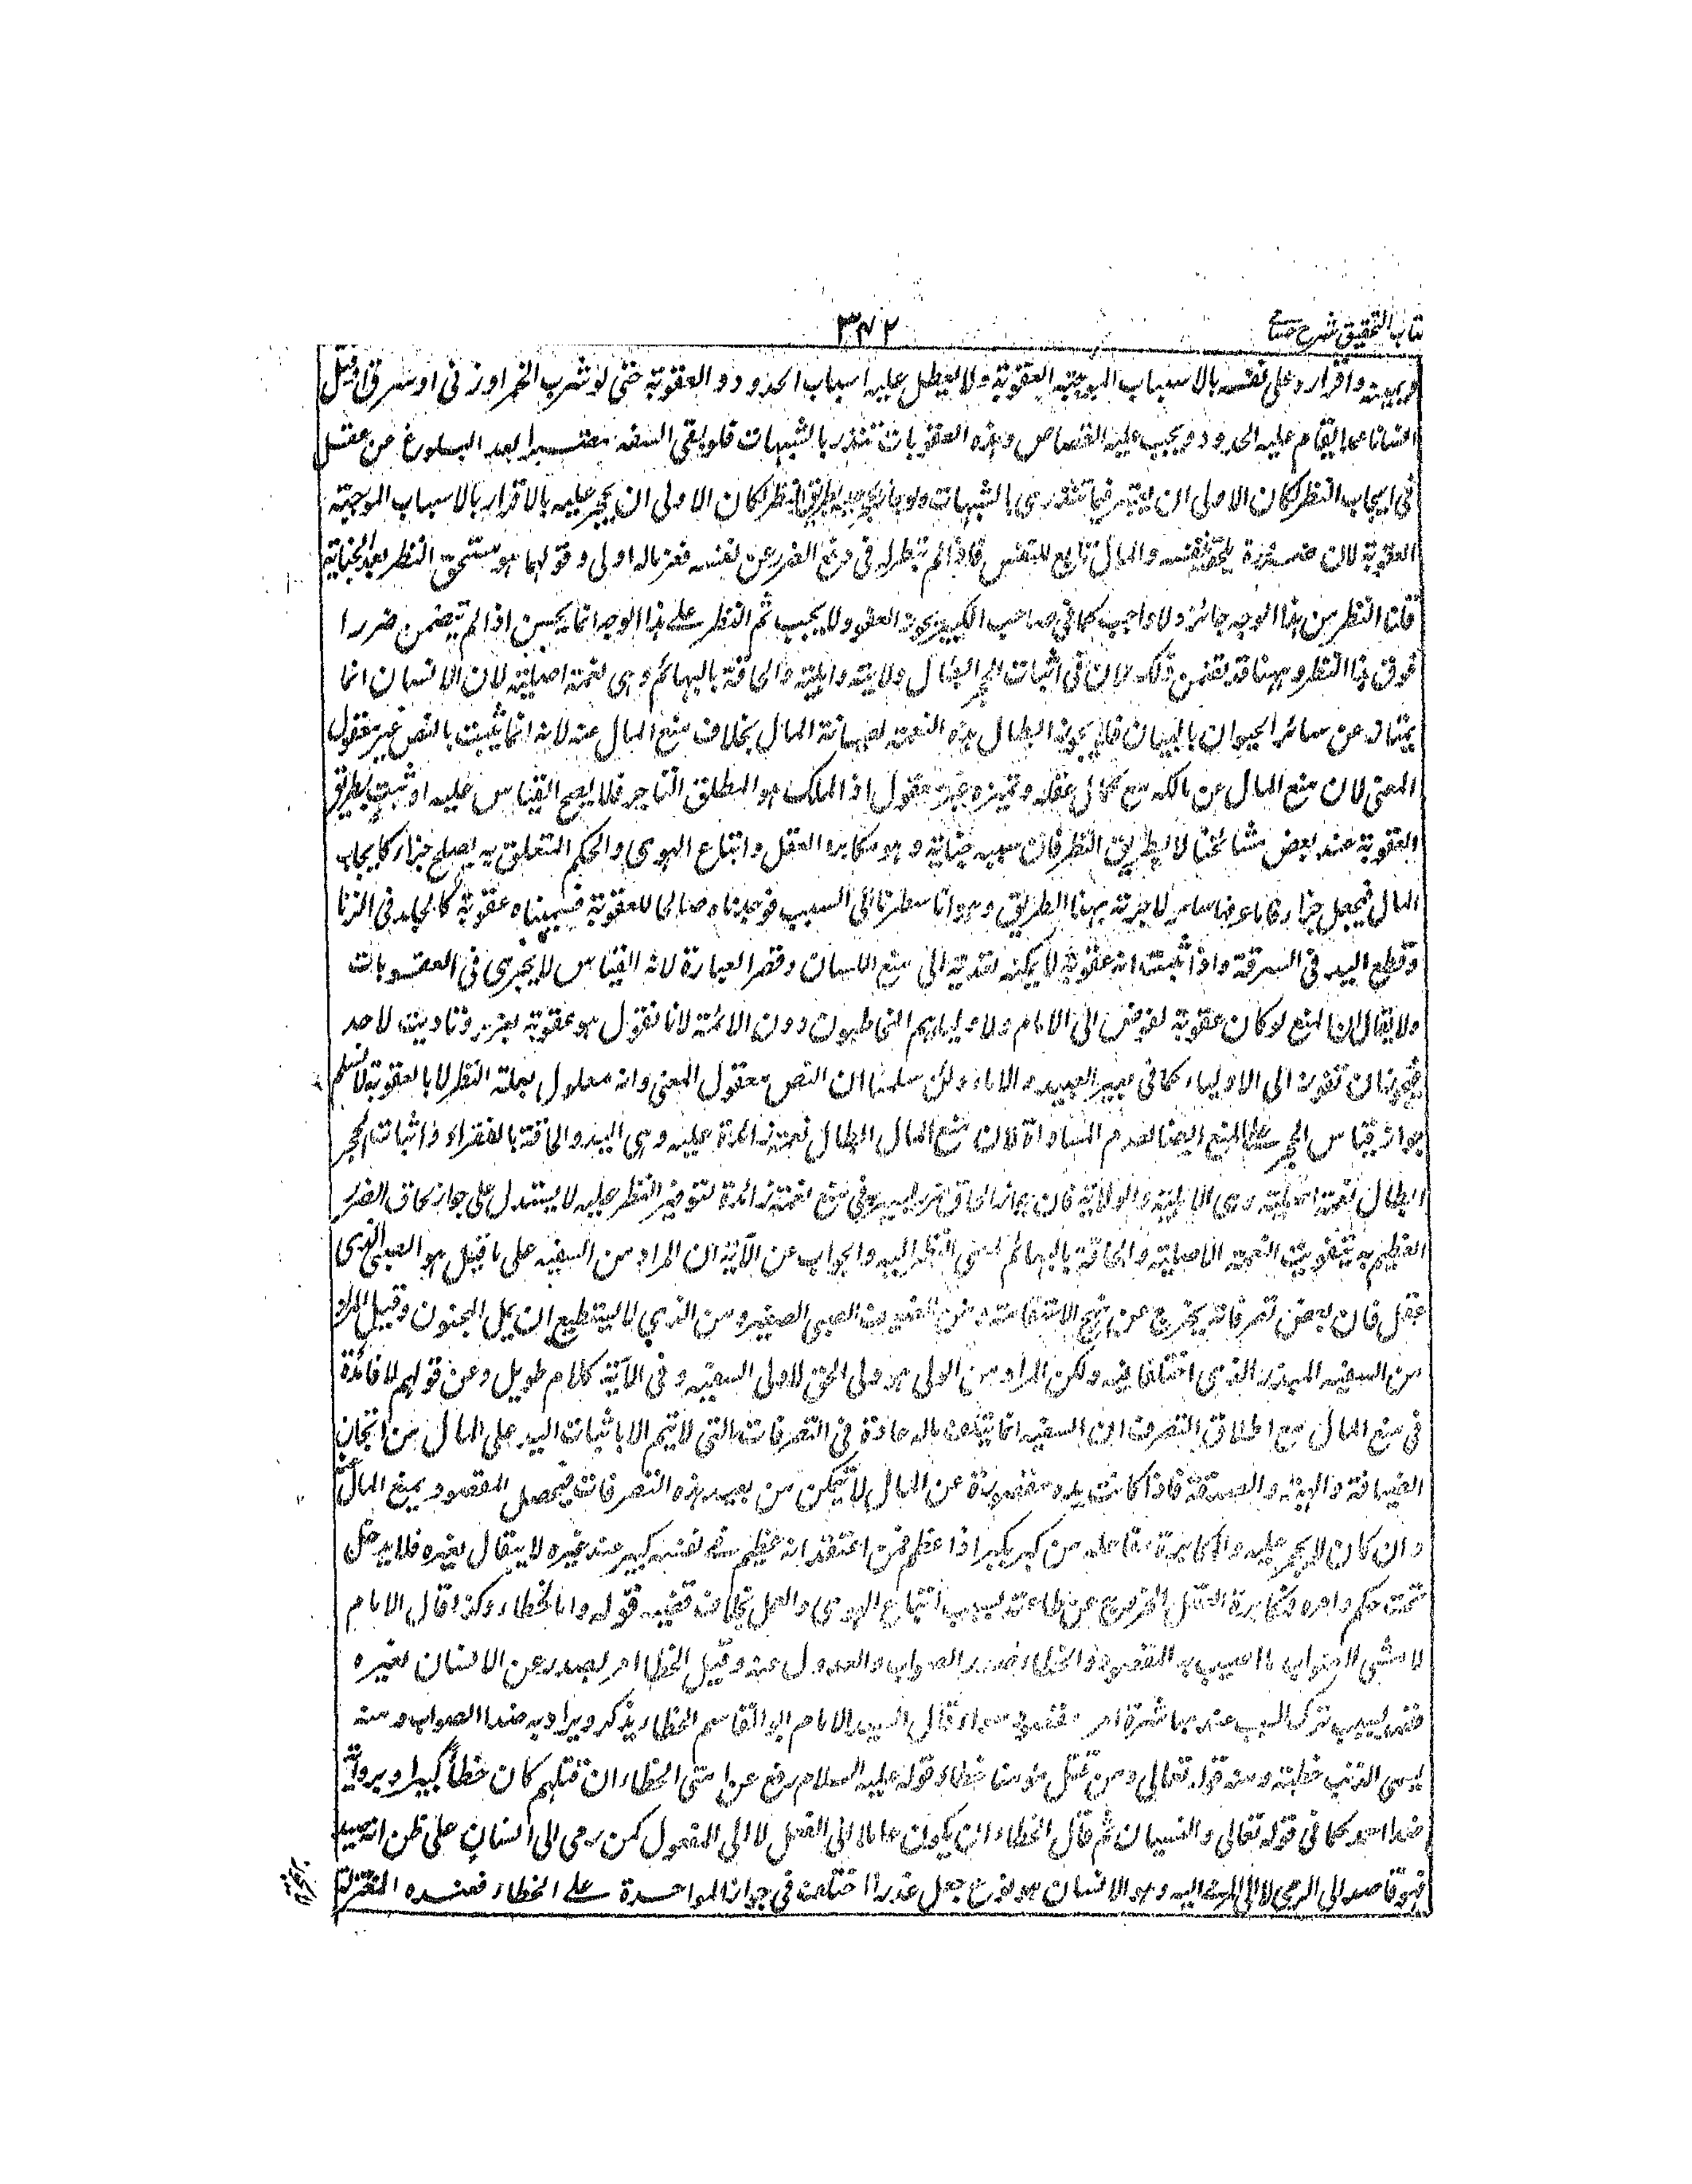 كتاب التحقيق شرح حسامي
٣٤٢
ويمينه واقراره على نفسه بالاسباب الموجبة العقوبة ولا يعطل عليه اسباب الحدود والعقوبة حتى لو شرب الخمر او زنى او سرق او قتل
انسانا عمدا يقام عليه الحدود ويجب عليه القصاص وهذه العقوبات تندرء بالشبهات فلو بقى السفه معتبرا بعد البلوغ عن عقل
فى ايجاب النظر لكان الاولى ان يعتبر فيما تندرى بالشبهات ولو جاز الحجر عليه بطريق النظر لكان الاولى ان يحجر عليه بالاقرار بالاسباب الموجبة
العقوبة لان ضرره يلحق نفسه والمال تابع للنفس فاذا لم ينظر له فى دفع الضرر عن نفسه فعن ماله اولى وقولهما هو مستحق النظر بعد الجناية
قلنا النظر من هذا الوجه جائز ولا واجب كما فى صاحب الكبيرة يجوز العفو ولا يجب ثم النظر على هذا الوجه انما يحسن اذا لم يتضمن ضررا
فوق هذا النظر وههنا قد يتضمن ذلك لان فى اثبات الحجر ابطال ولايته واهليته والحاقه بالبهائم وهى نعمة اصلية لان الانسان انما
يمتاز عن سائر الحيوان بالبيان فلا يجوز ابطال هذه النعمة لصيانة المال بخلاف منع المال عنه لانه انما يثبت بالنص غير معقول
المعنى لان منع المال عن مالكه مع كمال عقله وتميزه غير معقول اذ الملك هو المطلق الحاجز فلا يصح القياس عليه او ثبت بطريق
العقوبة عند بعض مشائخنا لا بطريق النظر فان سببه جناية وهو مكابرة العقل واتباع الهوى والحكم المتعلق به يصلح جزاء كايجاب
المال فيجعل جزاء
وقطع اليد فى السرقة واذا ثبت انه عقوبة لا يمكنه تعديته الى منع اللسان وقصر العبارة لانه القياس لا يجرى فى العقوبات
ولا يقال ان المنع لو كان عقوبة لفوض الى الامام ولا ولياء هم المخاطبون دون الائمة لانا نقول هو عقوبة تعزير وتاديب لا حد
فيجوز ان تفوض الى الاولياء كما فى تعزير العبيد والاماء ولئن سلمنا ان النص معقول المعنى وانه معلول بعلة النظر لا بالعقوبة لا نسلم
جواز قياس الحجر على المنع ايضا لعدم المساواة لان منع المال ابطال نعمة زائدة عليه وهى اليد والحاقه بالفقراء واثبات الحجر
ابطال نعمة اصلية وهى الاهلية والولاية فان جواز الحاق ضرر يسير فى منع نعمة زائدة لتوفير النظر عليه لا يستدل على جواز الحاق الضرر
العظيم به بتفويت النعمة الاصلية والحاقه بالبهائم لمعنى النظر اليه والجواب عن الآية ان المراد من السفيه على ما قيل هو الصبى الذى
عقل فان بعض تصرفاته يخرج عن نهج الاستقامة ومن الضعيف الصبى الصغير ومن الذي لا يستطيع ان يمل المجنون وقيل المراد
من السفيه المبذر الذى اختلفا فيه ولكن المراد من الولى هو ولى الحق لا ولى السفيه وفى الآية كلام طويل وعن قولهم لا فائدة
فى منع المال مع اطلاق التصرف ان السفيه انما يتلف ماله عادة فى التصرفات التى لا تتم الا باثبات اليد على المال من اتخاذ
الضيافة والهبة والصدقة فاذا كانت يده مقصورة عن المال لا يتمكن من تعييد هذه التصرفات فيحصل المقصود بمنع المال عنه
وان كان لا يحجر عليه والمكابرة مفاعلة من كبر يكبر اذا عظم فمن اعتقد انه عظيم فى نفسه كبير عند غيره لا ينقاد لغيره فلا يدخل
تحت حكم وامره ومكابرة العقل الخروج عن طاعته لسبب اتباع الهوى والعمل بخلاف قضيته قوله واما الخطاء وكذا قال الامام
اللامشى الصواب ما اصيب به المقصود والخطاء ضد الصواب والعدول عنه وقيل الخطاء امر يصدر عن الانسان بغير
قصد بسبب ترك التثبت عند مباشرة امر مقصود سواه قال السيد الامام ابو القاسم الخطاء يذكر ويراد به ضد الصواب ومنه
يسمى الذنب خطيئة ومنه قوله تعالى ومن قتل مؤمنا خطاء وقوله عليه السلام رفع عن امتى الخطاء ان قتلهم كان خطأ كبيرا ويراد به
ضد العمد كما فى قوله تعالى والنسيان ثم قال الخطاء ان يكون عامدا الى الفعل لا الى المفعول كمن رمى الى انسان على ظن انه صيد
فهو قاصد الى الرمى لا الى المرمى اليه وهو الانسان هو نوع جعل عذرا اختلف فى جواز المواخذة على الخطاء فعنده المعتزلة